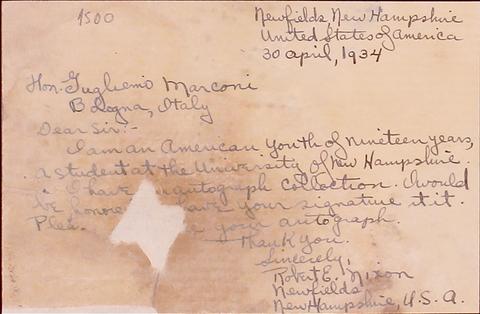 1500
Newfields, New Hampshire
United States of America
30 april, 1934
Hon. Guglielmo Marconi
Bologna, Italy
Dear Sir:-
I am an American youth of nineteen years,
a student at the University of New Hampshire.
I have autograph collection. I would
be have your signature it it.
your autograph.
Thank you.
Sincerely,
Robert E. Nixon
Newfields
New Hampshire, U.S.A.